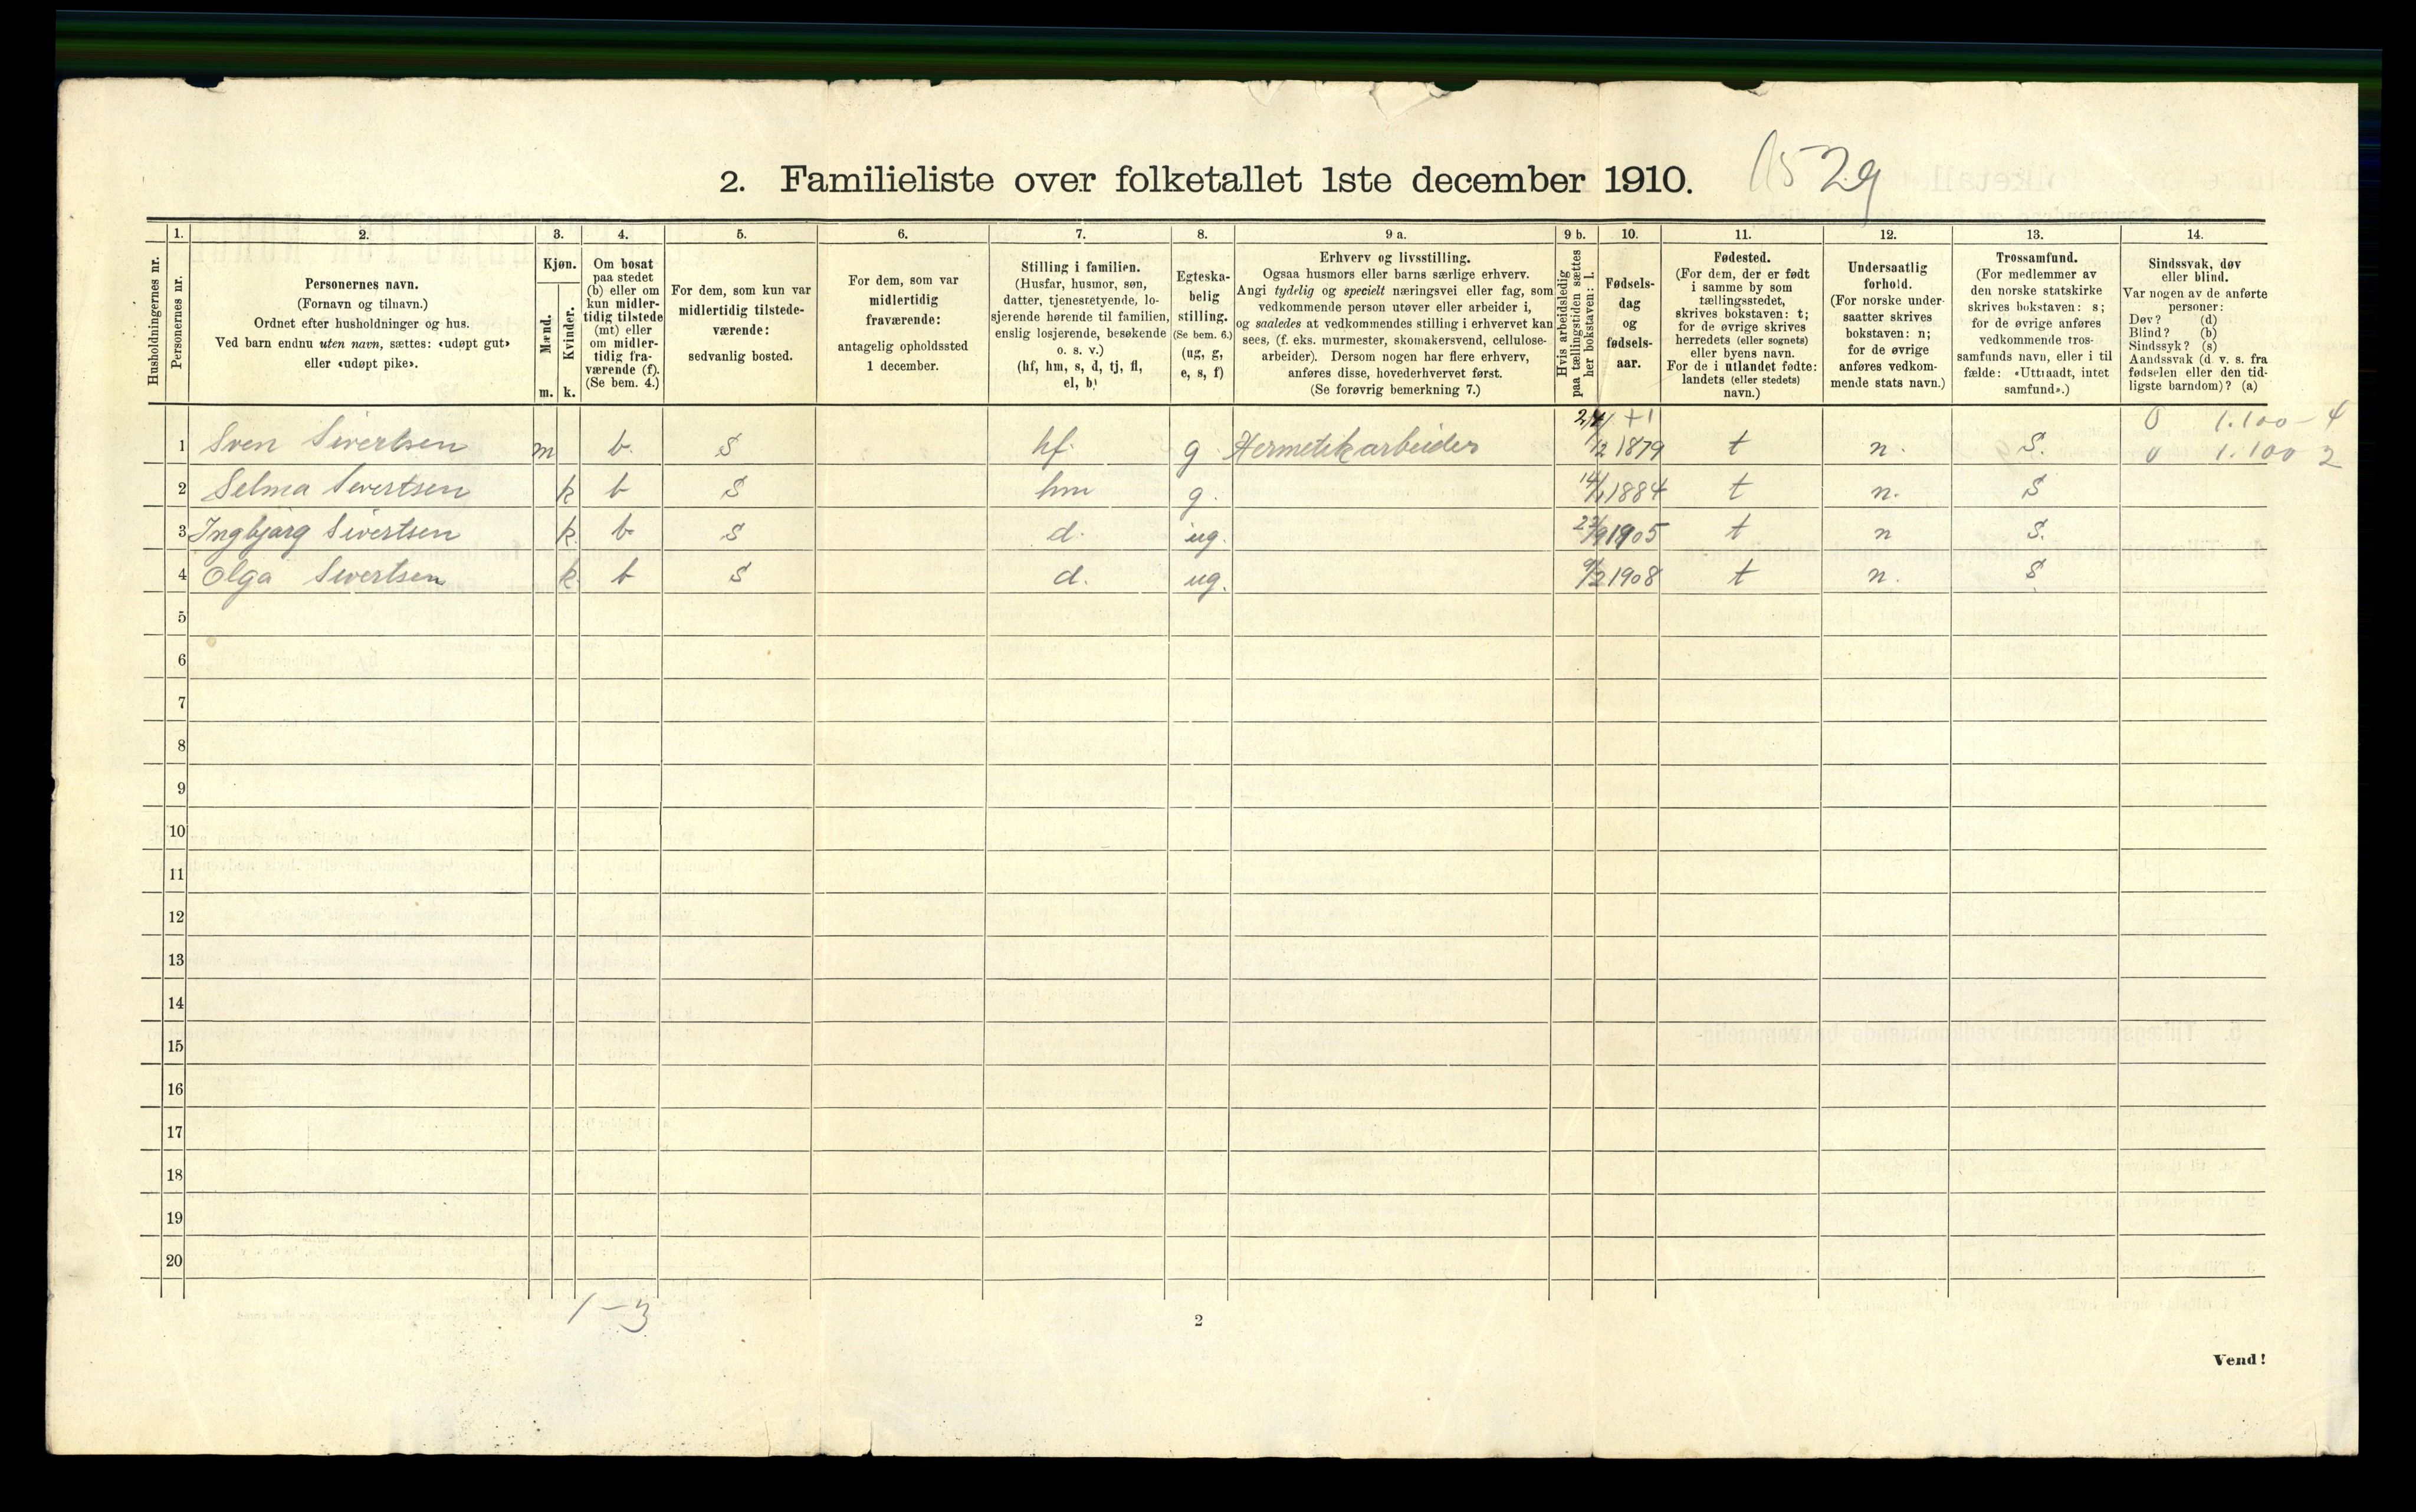 2. Familieliste over folketallet 1ste december 1910.
29
Husholdningernes nr.
1.
Personernes nr.
2.
Personernes navn.
(Fornavn og tilnavn.)
Ordnet efter husholdninger og hus.
Ved barn endnu uten navn, sættes: «udøpt gut»
eller «udøpt pike».
3.
Kjøn.
Mænd.
Kvinder.
m. k.
4.
Om bosat
paa stedet
(b) eller om
kun midler-
tidig tilstede
(mt) eller
om midler-
tidig fra-
værende (f).
(Se bem. 4.)
5.
For dem, som kun var
midlertidig tilstede-
værende:
sedvanlig bosted.
6.
For dem, som var
midlertidig
fraværende:
antagelig opholdssted
1 december.
7.
Stilling i familien.
(Husfar, husmor, søn,
datter, tjenestetyende, lo-
sjerende hørende til familien,
enslig losjerende, besøkende
o. s. v.)
(hf, hm, s, d, tj, fl,
el, b)
8.
Egteska-
belig
stilling.
(Se bem. 6.)
(ug, g,
e, s, f)
9 a.
Erhverv og livsstilling.
Ogsaa husmors eller barns særlige erhverv.
Angi tydelig og specielt næringsvei eller fag, som
vedkommende person utøver eller arbeider i,
og saaledes at vedkommendes stilling i erhvervet kan
sees, (f. eks. murmester, skomakersvend, cellulose-
arbeider). Dersom nogen har flere erhverv,
anføres disse, hovederhvervet først.
(Se forøvrig bemerkning 7.)
9 b.
Hvis arbeidsledig
paa tællingstiden sættes
her bokstaven: l.
10.
Fødsels-
dag
og
fødsels-
aar.
11.
Fødested.
(For dem, der er født
i samme by som
tællingsstedet,
skrives bokstaven: t;
for de øvrige skrives
herredets (eller sognets)
eller byens navn.
For de i utlandet fødte:
landets (eller stedets)
navn.)
12.
Undersaatlig
forhold.
(For norske under-
saatter skrives
bokstaven: n;
for de øvrige
anføres vedkom-
mende stats navn.)
13.
Trossamfund.
(For medlemmer av
den norske statskirke
skrives bokstaven: s;
for de øvrige anføres
vedkommende tros-
samfunds navn, eller i til
fælde: «Uttraadt, intet
samfund».)
14.
Sindssvak, døv
eller blind.
Var nogen av de anførte
personer:
Døv? (d)
Blind? (b)
Sindssyk? (s)
Aandssvak (d. v. s. fra
fødselen eller den tid-
ligste barndom)? (a)
0 1.100-4
1 Sven Sivertsen m b. S hf. g Hermetikarbeider 1879 t n. S. 0 1.100 2
2 Selma Sivertsen k b S hm g. 14/1 1884 t n. S
3 Ingbjørg Sivertsen k. b S d. ug. 1905 t n S.
4 Olga Sivertsen k. b S d. ug. 9/2 1908 t n. S
5
6
7
8
9
10
11
12
13
14
15
16
17
18
19
20
1-3
2
Vend!